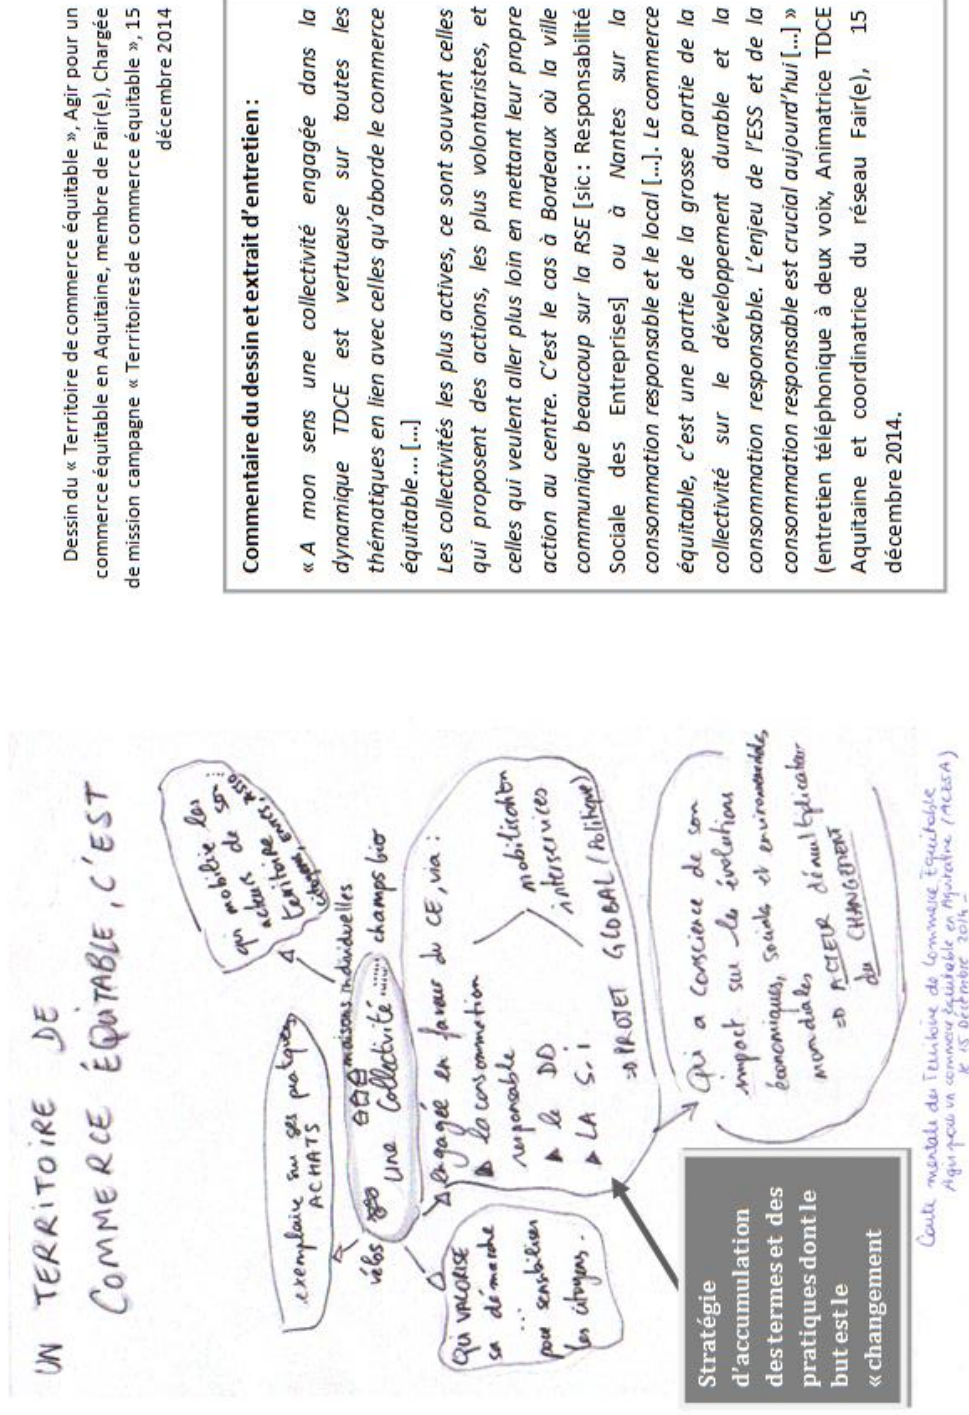 UN TERRITOIRE DE
COMMERCE ÉQUITABLE, C'EST
exemplaire sur ses pratiques
ACHATS
qui mobilise les
acteurs de son
territoire :
vélos
maisons individuelles
Une Collectivité
champs bio
Qui VALORISE
sa démarche
pour sensibiliser
les citoyens.
engagée en faveur du CE, via :
la consommation
responsable
le DD
LA S.I
mobilisation
interservices
=> PROJET GLOBAL (Politique)
Qui a conscience de son
impact sur les évolutions
économiques, sociales et environnementales
mondiales
=> ACTEUR démultiplicateur
du CHANGEMENT
Stratégie
d'accumulation
des termes et des
pratiques dont le
but est le
« changement
Carte mentale du Territoire de Commerce Equitable
Agir pour un commerce équitable en Aquitaine (ACESA)
15 Décembre 2014
Dessin du « Territoire de commerce équitable », Agir pour un
commerce équitable en Aquitaine, membre de Fair(e), Chargée
de mission campagne « Territoires de commerce équitable », 15
décembre 2014
Commentaire du dessin et extrait d'entretien :
« A mon sens une collectivité engagée dans la
dynamique TDCE est vertueuse sur toutes les
thématiques en lien avec celles qu'aborde le commerce
équitable... [...]
Les collectivités les plus actives, ce sont souvent celles
qui proposent des actions, les plus volontaristes, et
celles qui veulent aller plus loin en mettant leur propre
action au centre. C'est le cas à Bordeaux où la ville
communique beaucoup sur la RSE [sic : Responsabilité
Sociale des Entreprises] ou à Nantes sur la
consommation responsable et le local [...]. Le commerce
équitable, c'est une partie de la grosse partie de la
collectivité sur le développement durable et la
consommation responsable. L'enjeu de l'ESS et de la
consommation responsable est crucial aujourd'hui [...] »
(entretien téléphonique à deux voix, Animatrice TDCE
Aquitaine et coordinatrice du réseau Fair(e), 15
décembre 2014.